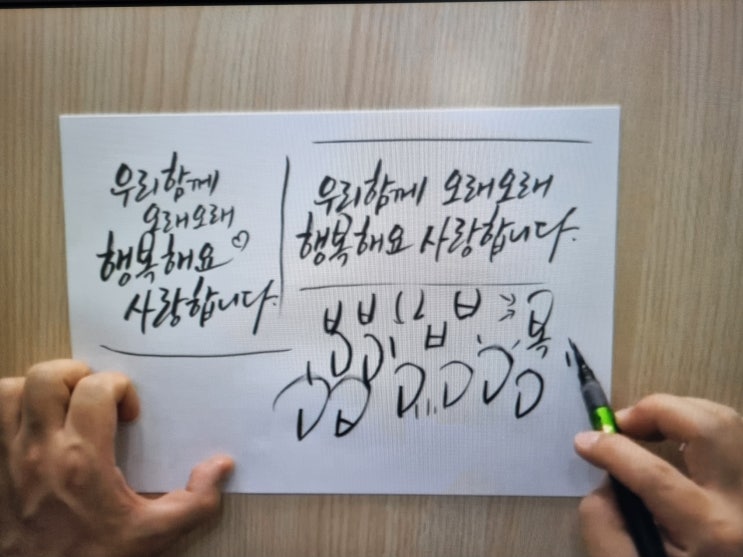 우리함께
오래오래
행복해요♡
사랑합니다.
우리함께 오래오래
행복해요 사랑합니다.
복